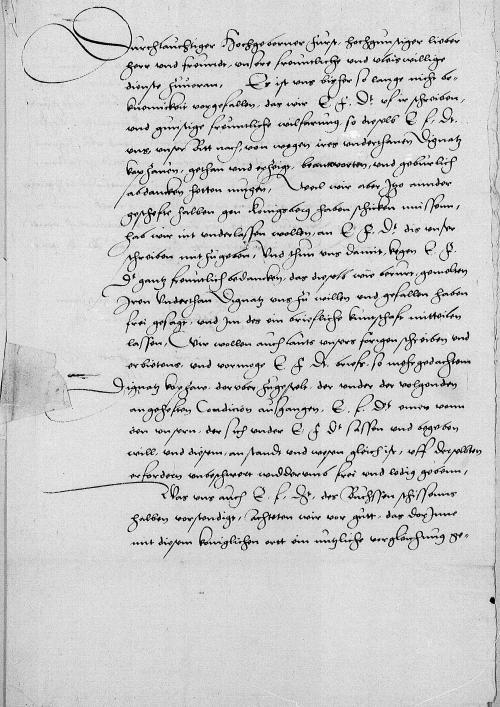 Durchlauchtiger Hochgeborner furst, hochgunstiger lieber
herr und freundt, unsere freuntliche und vleis willige
dienste zuuoran, Es ist uns bisher so lange nicht be-
vorgefallen, das wir E F Dt uf ir schreiben,
und gunstige freuntliche wilfarung, so dieselb E f Dt
uns, unser Bitt nach, von wegen ires underthanen Dignatz
gethan und erzeigt, beantworten, und geburlich
abdancken hetten mugen, Weil wir aber itzo annder
gescheffte halben gen Konigsberg haben schicken mussen,
hab wir nit underlassen wollen, an E F Dt dis unser
schreiben mit zugeben, Und thun uns damit, kegen E F
Dt gantz freuntlich bedancken, das dieselb wie berurt, gemelten
Iren Underthan Dignatz uns zu willen und gefallen haben
frei gesagt, und Im des ein briefliche kuntschaft mitteilen
lassen, Wir wollen auch lauts unsers forigen schreiben und
erbietens, und vermoge E F Dt brifs, so mehrgedachtem
Dignatz daruber zugestelt, der under der volgenden
angehefften Condition ausgangen, E. f. Dt einen vonn
den unsern, der sich under E F Dt lassen und begeben
will, und diesem, an standt und wesen gleich ist, uff derselbten
erfordern unbeschwert widderumb frei und ledig geben,
Was uns auch E. f. Dt. des Buchssen schissens
halben verstendigt, Achteten wir vor gutt, das dorInne
mit diesem koniglichen ortt ein nutzliche vergleichung ge-